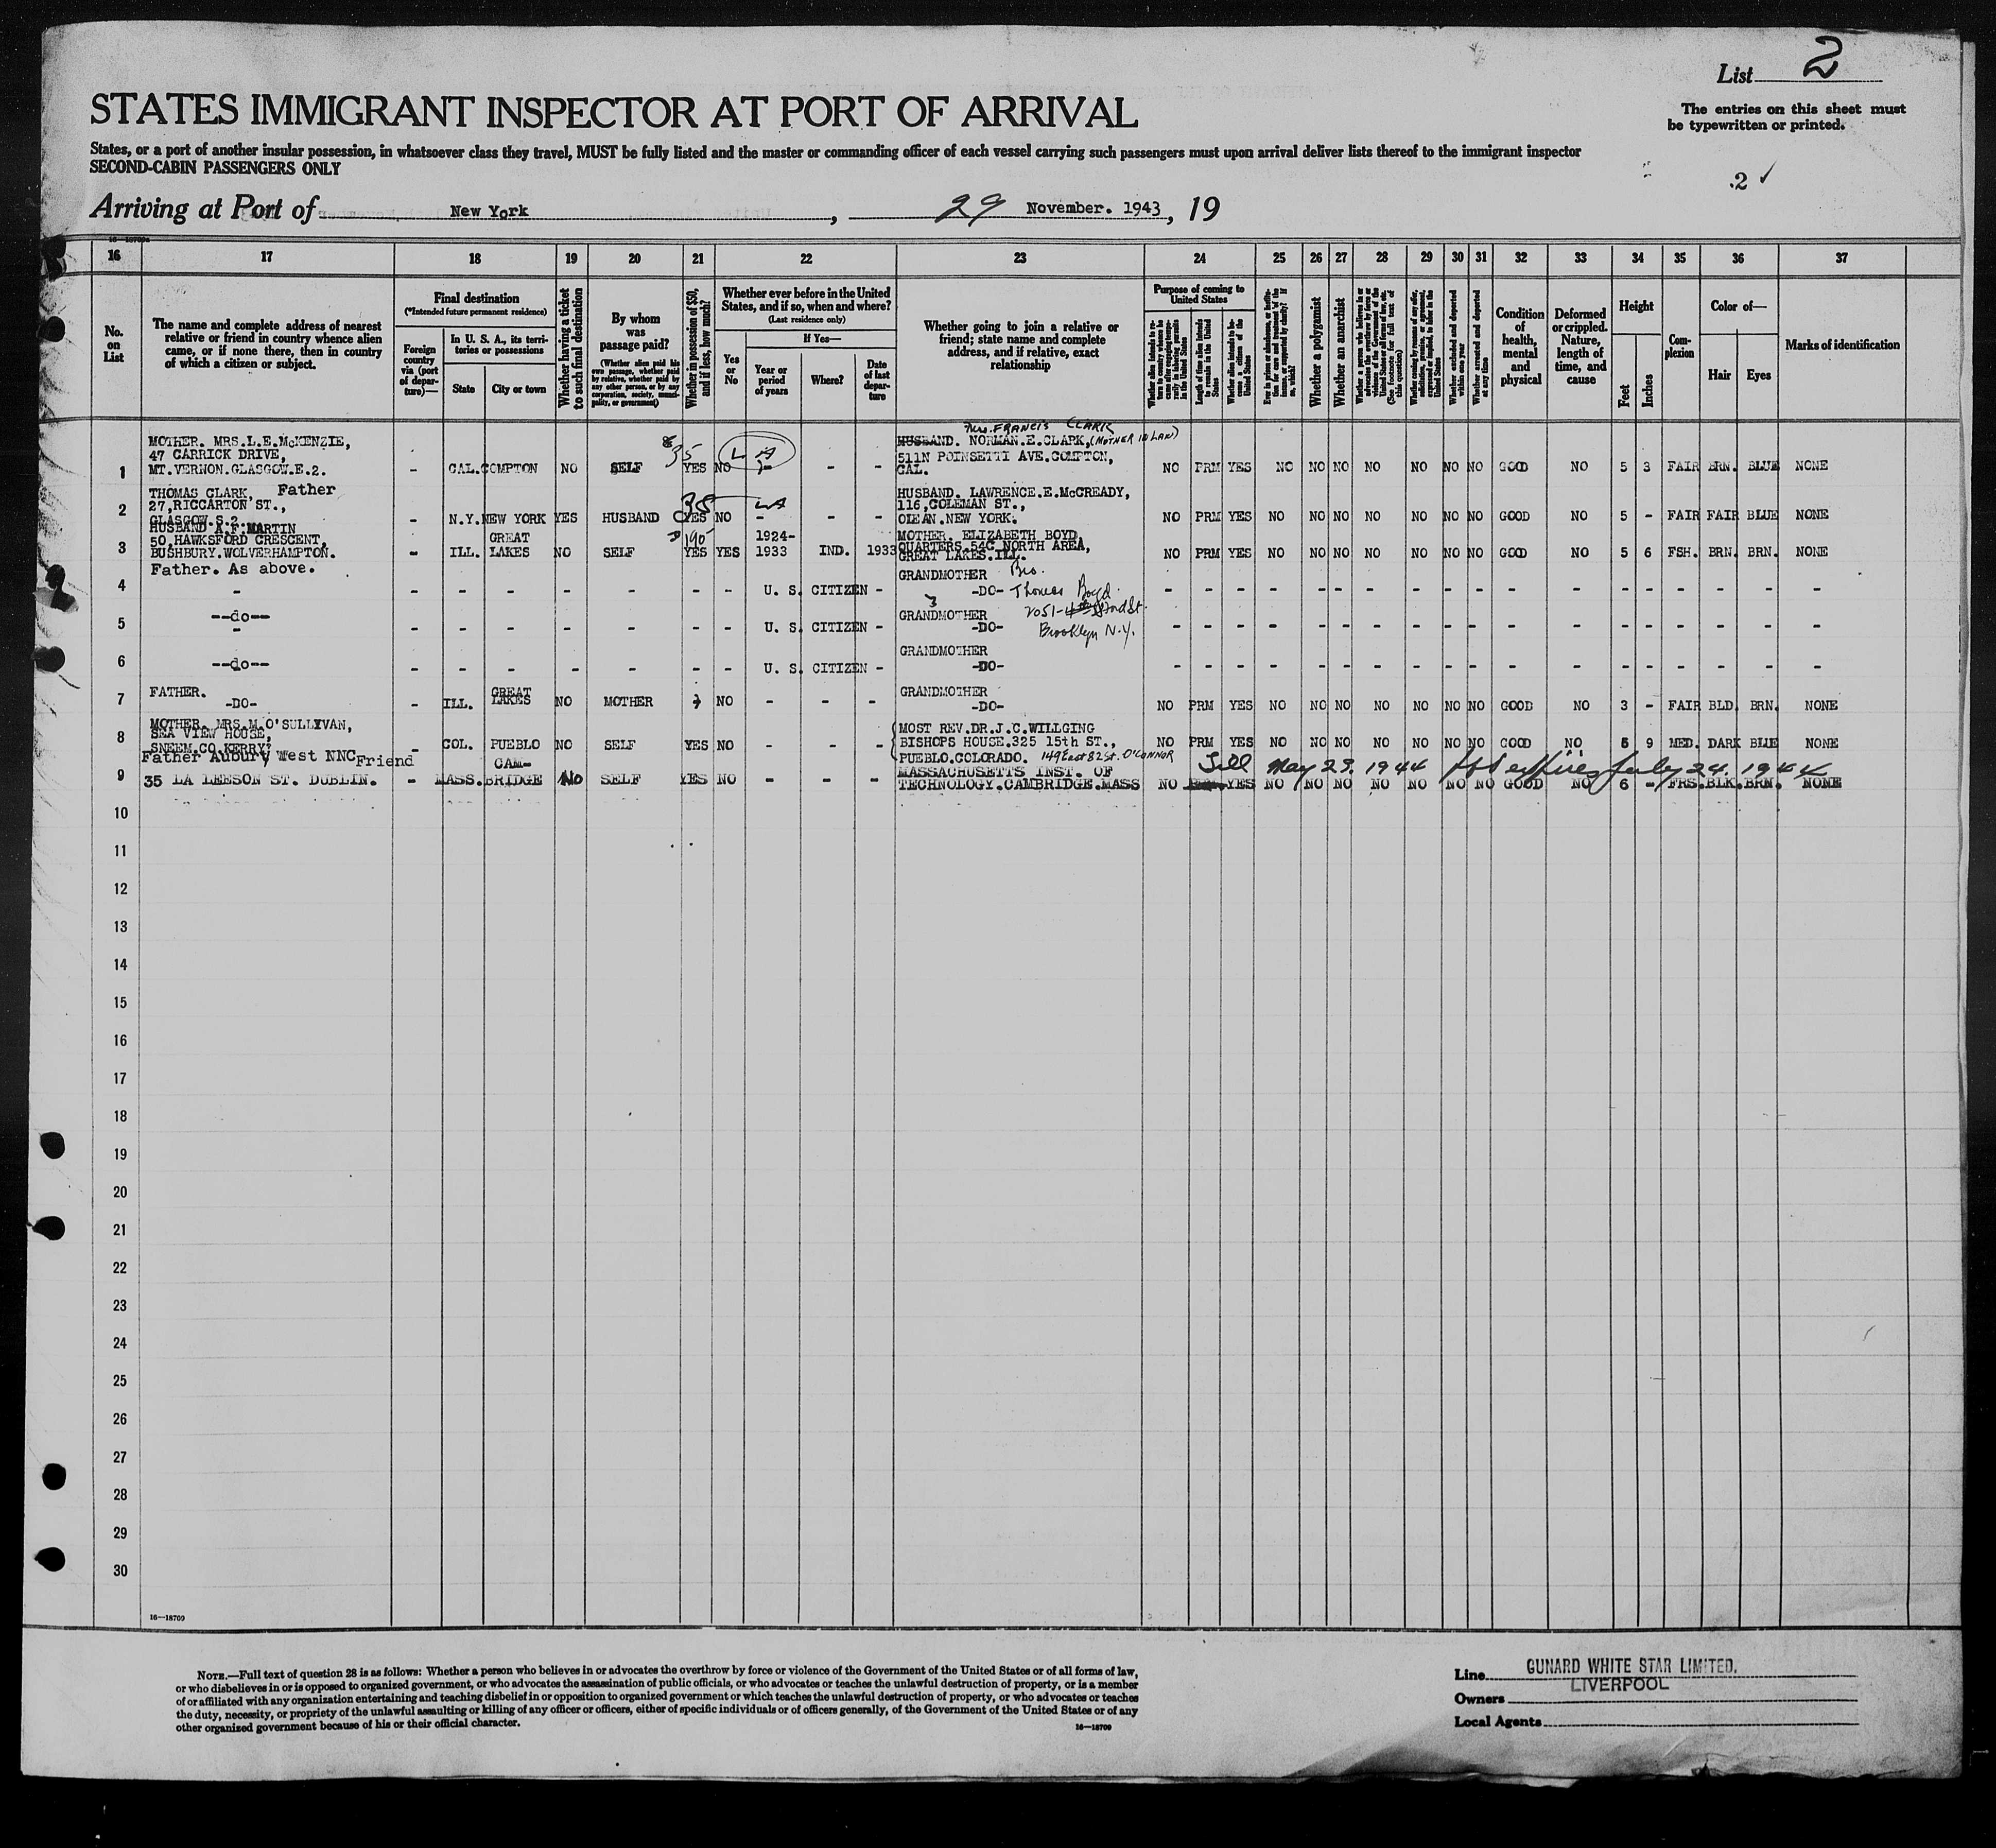 List 2
The entries on this sheet must
be typewritten or printed.
STATES IMMIGRANT INSPECTOR AT PORT OF ARRIVAL
States, or a port of another insular possession, in whatsoever class they travel, MUST be fully listed and the master or commanding officer of each vessel carrying such passengers must upon arrival deliver lists thereof to the immigrant inspector
SECOND-CABIN PASSENGERS ONLY
.2 ✓
Arriving at Port of New York, 29 November. 1943, 19
16 17 18 19 20 21 22 23 24 25 26 27 28 29 30 31 32 33 34 35 36 37
No. on List
The name and complete address of nearest relative or friend in country whence alien came, or if none there, then in country of which a citizen or subject.
Final destination
(*Intended future permanent residence)
Foreign country via (port of departure)—
In U. S. A., its territories or possessions
State
City or town
Whether having a ticket to such final destination
By whom was passage paid?
(Whether alien paid his own passage, whether paid by relative, whether paid by any other person, or by any corporation, society, municipality, or government)
Whether in possession of $50, and if less, how much?
Whether ever before in the United States, and if so, when and where?
(Last residence only)
Yes or No
If Yes—
Year or period of years
Where?
Date of last departure
Whether going to join a relative or friend; state name and complete address, and if relative, exact relationship
Purpose of coming to United States
Whether alien intends to return to country whence he came after engaging temporarily in laboring pursuits in the United States
Length of time alien intends to remain in the United States
Whether alien intends to become a citizen of the United States
Ever in prison or almshouse, or institution for care and treatment of the insane, or supported by charity? If so, which?
Whether a polygamist
Whether an anarchist
Whether a person who believes in or advocates the overthrow by force or violence of the Government of the United States or all forms of law, etc. (See footnote for full text of this question)
Whether coming by reason of any offer, solicitation, promise, or agreement, expressed or implied, to labor in the United States
Whether excluded and deported within one year
Whether arrested and deported at any time
Condition of health, mental and physical
Deformed or crippled. Nature, length of time, and cause
Height
Feet
Inches
Complexion
Color of—
Hair
Eyes
Marks of identification
1 MOTHER. MRS.L.E.McKENZIE,
47 CARRICK DRIVE,
MT.VERNON.GLASGOW.E.2. - CAL. COMPTON NO SELF 35 YES NO - - -
Mrs. FRANCIS CLARK
HUSBAND. NORMAN.E.CLARK, (MOTHER IN LAW)
511N POINSETTI AVE.COMPTON,
CAL. NO PRM YES NO NO NO NO NO NO NO GOOD NO 5 3 FAIR BRN. BLUE NONE
2 THOMAS CLARK, Father
27,RICCARTON ST.,
GLASGOW.S.2. - N.Y. NEW YORK YES HUSBAND 35 YES NO - - -
HUSBAND. LAWRENCE.E.McCREADY,
116,COLEMAN ST.,
OLEAN.NEW YORK. NO PRM YES NO NO NO NO NO NO NO GOOD NO 5 - FAIR FAIR BLUE NONE
3 HUSBAND A.F.MARTIN
50,HAWKSFORD CRESCENT,
BUSHBURY.WOLVERHAMPTON. - ILL. GREAT LAKES NO SELF 190 YES YES 1924-1933 IND. 1933
MOTHER. ELIZABETH BOYD,
QUARTERS.54C NORTH AREA,
GREAT LAKES.ILL. NO PRM YES NO NO NO NO NO NO NO GOOD NO 5 6 FSH. BRN. BRN. NONE
4 Father. As above.
- - - - - - - - U. S. CITIZEN - GRANDMOTHER Bro.
-DO- Thomas Boyd - - - - - - - - - - - - - - - - -
5 --do--
- - - - - - - - U. S. CITIZEN - GRANDMOTHER 2051- 82nd St.
-DO- Brooklyn N.Y. - - - - - - - - - - - - - - - - -
6 --do-- - - - - - - - U. S. CITIZEN - GRANDMOTHER
-DO- - - - - - - - - - - - - - - - - -
7 FATHER.
-DO- - ILL. GREAT LAKES NO MOTHER NO - - - GRANDMOTHER
-DO- NO PRM YES NO NO NO NO NO NO NO GOOD NO 3 - FAIR BLD. BRN. NONE
8 MOTHER. MRS.M.O'SULLIVAN,
SEA VIEW HOUSE,
SNEEM.CO.KERRY. - COL. PUEBLO NO SELF YES NO - - -
MOST REV.DR.J.C.WILLGING
BISHOPS HOUSE.325 15th ST.,
PUEBLO.COLORADO. 149 East 82 St. O'CONNOR NO PRM YES NO NO NO NO NO NO NO GOOD NO 5 9 MED. DARK BLUE NONE
9 Father Aubury West NNC Friend
35 LA LEESON ST. DUBLIN. - MASS. CAM-BRIDGE No SELF YES NO - - -
MASSACHUSETTS INST. OF
TECHNOLOGY.CAMBRIDGE.MASS Till May 23. 1944 expires July 24. 1944
NO YES NO NO NO NO NO NO NO GOOD NO 6 - FRS. BLK. BRN. NONE
10
11
12
13
14
15
16
17
18
19
20
21
22
23
24
25
26
27
28
29
30
16—18709
NOTE.—Full text of question 28 is as follows: Whether a person who believes in or advocates the overthrow by force or violence of the Government of the United States or of all forms of law,
or who disbelieves in or is opposed to organized government, or who advocates the assassination of public officials, or who advocates or teaches the unlawful destruction of property, or is a member
of or affiliated with any organization entertaining and teaching disbelief in or opposition to organized government or which teaches the unlawful destruction of property, or who advocates or teaches
the duty, necessity, or propriety of the unlawful assaulting or killing of any officer or officers, either of specific individuals or of officers generally, of the Government of the United States or of any
other organized government because of his or their official character.
16—18709
Line CUNARD WHITE STAR LIMITED.
LIVERPOOL
Owners
Local Agents